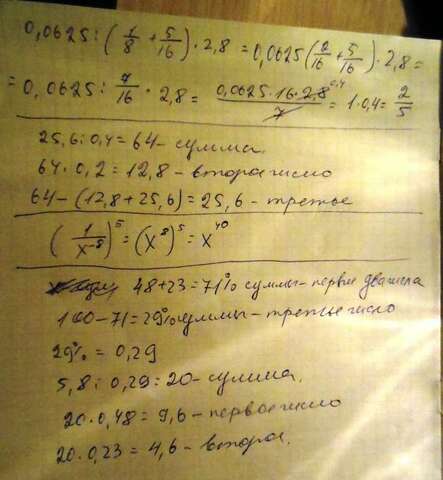 0,0625 : (1/8 + 5/16) · 2,8 = 0,0625 (2/16 + 5/16) · 2,8 =
= 0,0625 : 7/16 · 2,8 = 0,0625·16·2,8 0,4 / 7 = 1·0,4 = 2/5
25,6 : 0,4 = 64 - сумма.
64 · 0,2 = 12,8 - второе число
64 - (12,8 + 25,6) = 25,6 - третье
(1/x^-8)^5 = (x^8)^5 = x^40
48 + 23 = 71% суммы - первые два числа
100 - 71 = 29% суммы - третье число
29% = 0,29
5,8 : 0,29 = 20 - сумма.
20 · 0,48 = 9,6 - первое число
20 · 0,23 = 4,6 - второе.